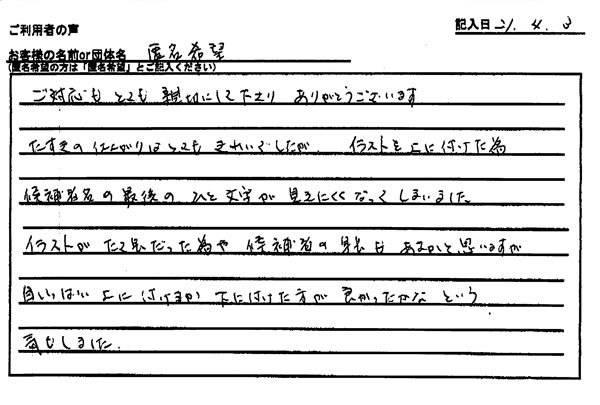 ご利用者の声
記入日 21. 4. 3
お客様の名前or団体名 匿名希望
(匿名希望の方は「匿名希望」とご記入ください)
ご対応も とても 親切にして下さり ありがとうございます
たすきの仕上がりはとても きれいでしたが、 イラストを 上に 付けた為
候補者名の最後の ひと文字が 見えにくくなってしまいました
イラストが たて長だった為や 候補者の身長も あるかと思いますが
目いっぱい 上に 付けるか 下に付けた方が 良かったかな という
気もしました.